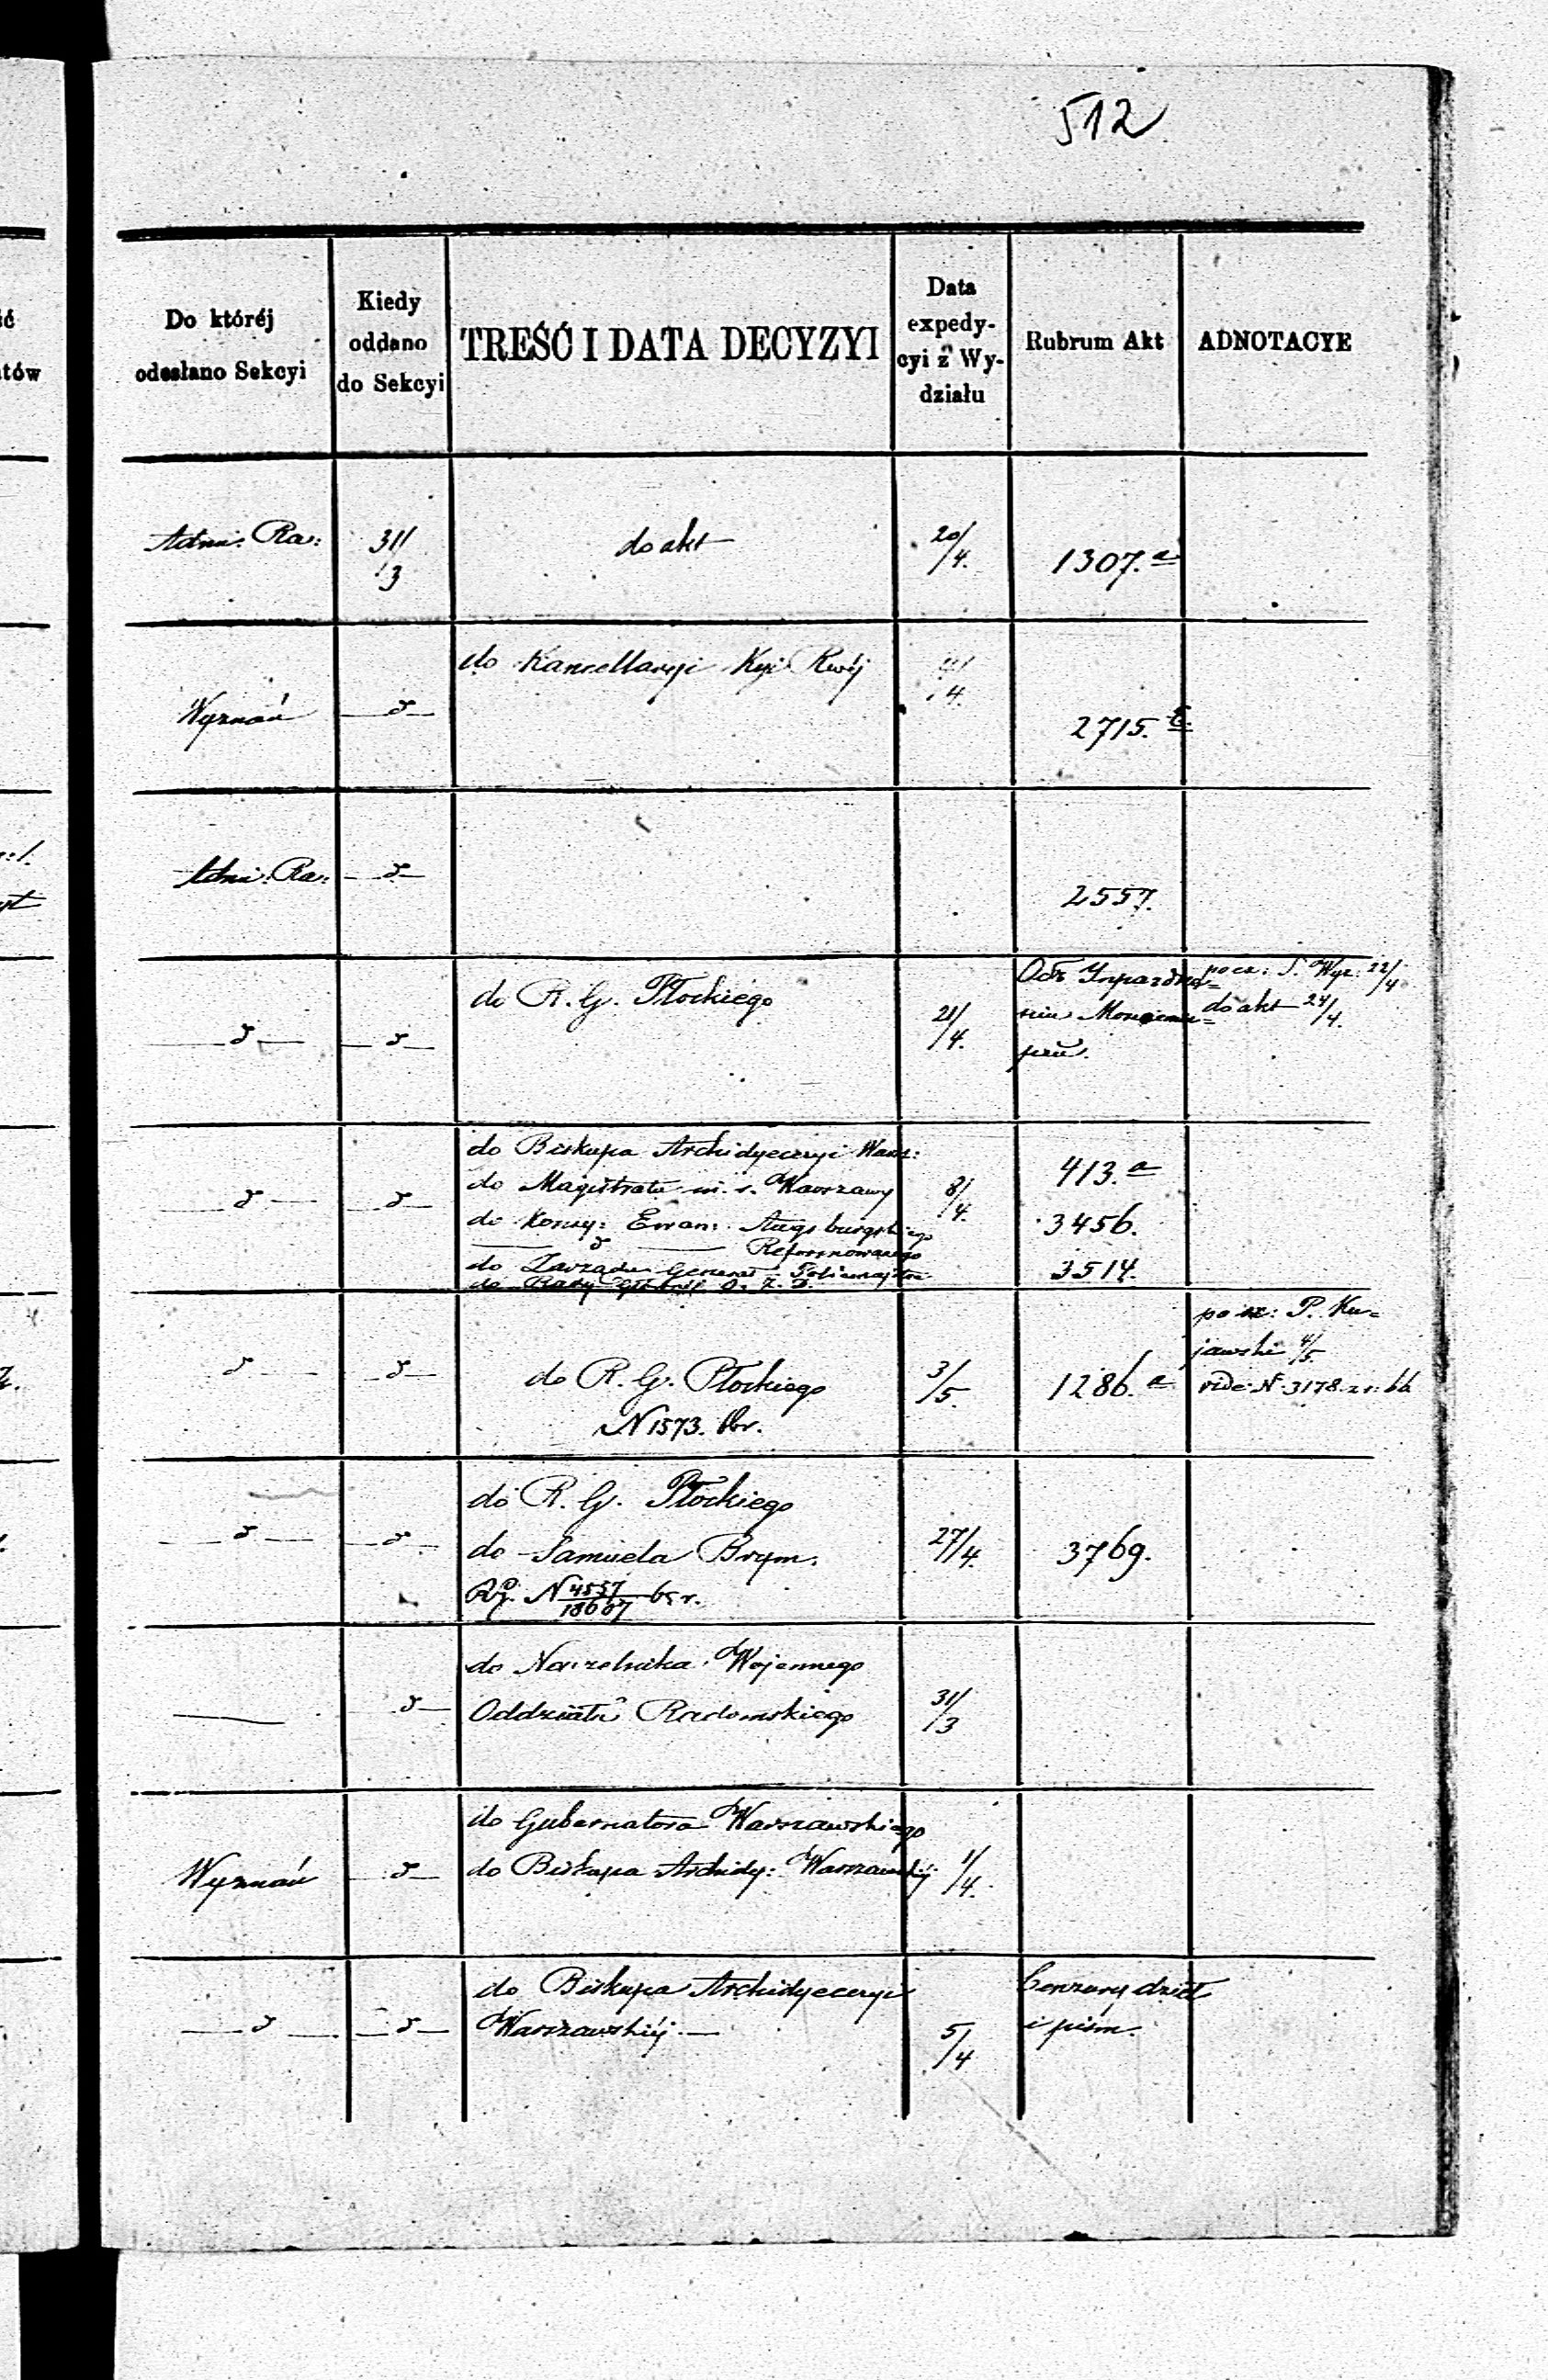 512
Do któréj
odesłano Sekcyi
Kiedy
oddano
do Sekcyi
TREŚĆ I DATA DECYZYI
Data
expedy-
cyi z Wy-
działu
Rubrum Akt
ADNOTACYE
Adm: Ra:
31/3
do akt
20/4.
1307. a
Wyznań
do Kancellaryi Kyi Rwéj
4/4.
2715.
Adm: Ra:
2557.
do R. G. Płockiego
21/4.
S. Wyz: 22/4
do akt 24/4.
do Biskupa Archidyecezyi Warsz:
do Magistratu m. s. Warszawy
do Konsy: Ewan: Augsburgskiego
Reformowanego
do Zarządu General Policmajstra
do Rady
8/4.
413. a
3456.
3514.
do R. G. Płockiego
N 1573.
3/5.
1286. a
P. Ku=
jawski 4/5.
vide N. 3178
do R. G. Płockiego
do Samuela Brym.
N 4557/18607
27/4.
3769.
do Naczelnika Wojennego
Oddziału Radomskiego
31/3
Wyznań
do Gubernatora Warszawskiego
do Biskupa Archidy: Warszawskiéj
1/4.
do Biskupa Archidyecezyi
Warszawskiéj.—
5/4
Cenzury dzieł
i pism.